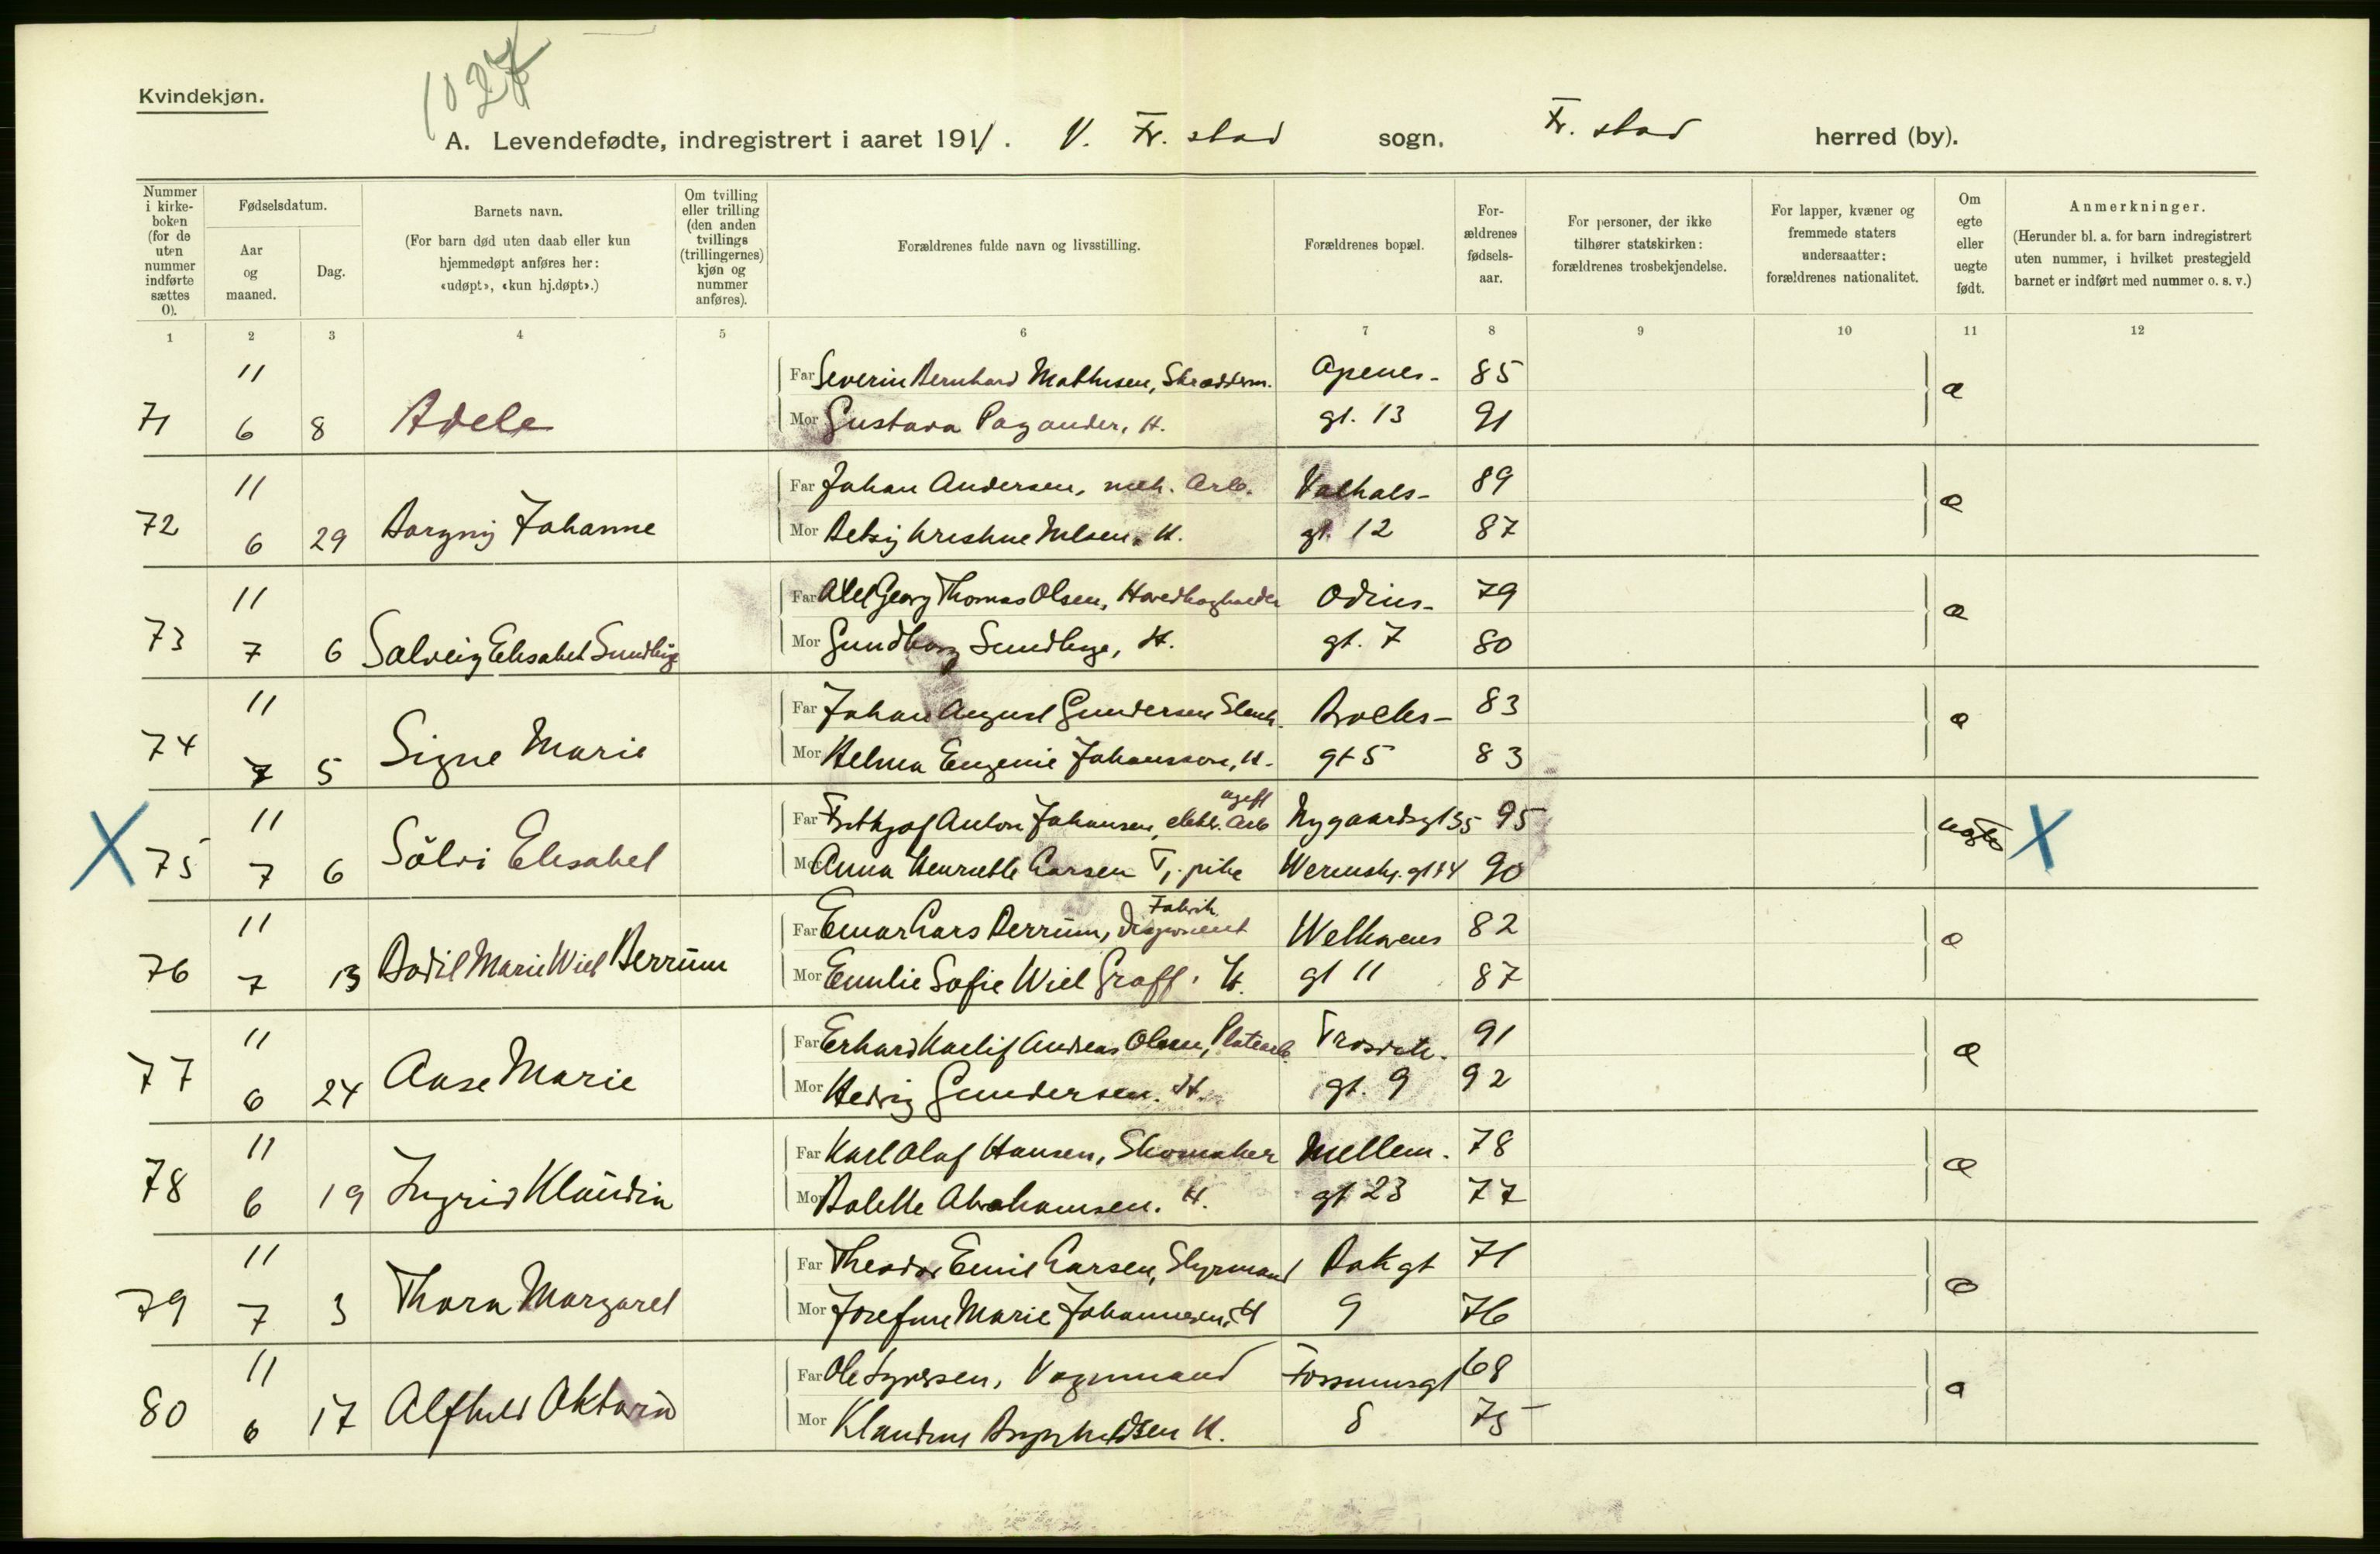 Kvindekjøn.
A. Levendefødte, indregistrert i aaret 1911. V. Fr. stad sogn. Fr. stad herred (by).
Nummer i kirkeboken (for de uten nummer indførte sættes 0).
Fødselsdatum.
Aar og maaned.
Dag.
Barnets navn.
(For barn død uten daab eller kun hjemmedøpt anføres her: «udøpt», «kun hj.døpt».)
Om tvilling eller trilling (den anden tvillings (trillingernes) kjøn og nummer anføres).
Forældrenes fulde navn og livsstilling.
Forældrenes bopæl.
For-
ældrenes
fødsels-
aar.
For personer, der ikke
tilhører statskirken:
forældrenes trosbekjendelse.
For lapper, kvæner og
fremmede staters
undersaatter:
forældrenes nationalitet.
Om
egte
eller
uegte
født.
Anmerkninger.
(Herunder bl. a. for barn indregistrert
uten nummer, i hvilket prestegjeld
barnet er indført med nummer o. s. v.)
1 2 3 4 5 6 7 8 9 10 11 12
11 Far Severin Bernhard Mathisen, Skrædderm. Apenes- 85
71 6 8 Adele Mor Gustava Pagander, H. gt. 13 91 æ
11 Far Johan Andersen, mek. Arb. Valhals- 89
72 6 29 Borgny Johanne Mor Betsy Kristine Nilsen, H. gt. 12 87 æ
11 Far Axel Georg Thomas Olsen, Odins- 79
73 7 6 Solveig Elisabet Sundbye Mor Gundborg Sundbye, H. gt. 7 80 æ
11 Far Johan August Gundersen 83
74 7 5 Signe Marie Mor Helma Eugenie Johansson, H. gt 5 83 æ
11 Far Fritjof Anton Johansen, elektr. Arb ugift Nygaardsgt 35 95
X 75 7 6 Sölvi Elisabet Mor Anna Henriette Larsen T. pike gt 14 90 uegte X
11 Far Einar Lars Berrum, Fabrik Disponent Welhavens 82
76 7 13 Bodil Marie Wiel Berrum Mor Emilie Sofie Wiel Graff, H. gt 11 87 æ
11 Far Erhard Andreas Olsen, Platearb. Trosvik- 91
77 6 24 Aase Marie Mor Hedvig Gundersen. H. gt. 9 92 æ
11 Far Karl Olaf Hansen, Skomaker Mellem- 78
78 6 19 Ingrid Klaudia Mor Bolette Abrahamsen. H. gt 23 77 æ
11 Far Theodor Emil Larsen, Styrmand Bakgt 71
79 7 3 Thora Margaret Mor Josefine Marie Johannesen, H 9 76 æ
11 Far Ole Syversen, Vognmand Fossumsgt 68
80 6 17 Alfhild Oktavia Mor H. 8 75 æ